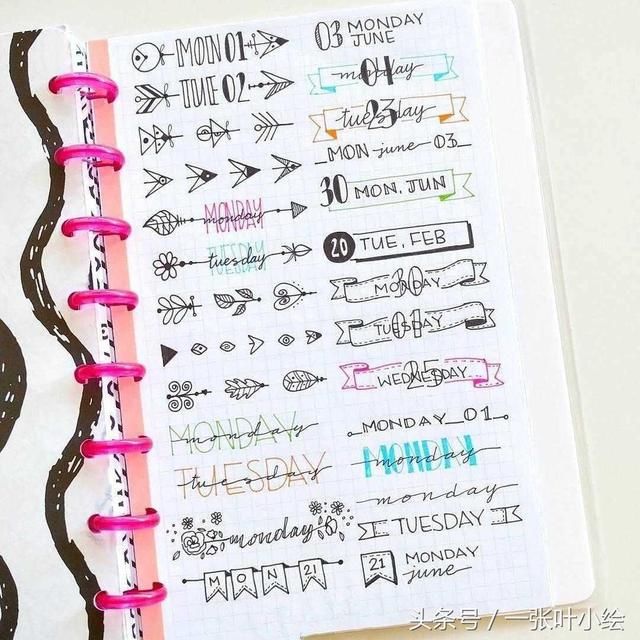 MON 01
TUE 02
MONDAY
monday
TUESDAY
tuesday
MONDAY
monday
TUESDAY
tuesday
monday
MON 21
03 MONDAY
JUNE
monday
04
tuesday
23
MON june 03
30 MON, JUN
20 TUE, FEB
MONDAY
30
TUESDAY
01
WEDNESDAY
25
MONDAY_01
MONDAY
monday
monday
TUESDAY
21 MONDAY
june
头条号 / 一张叶小绘